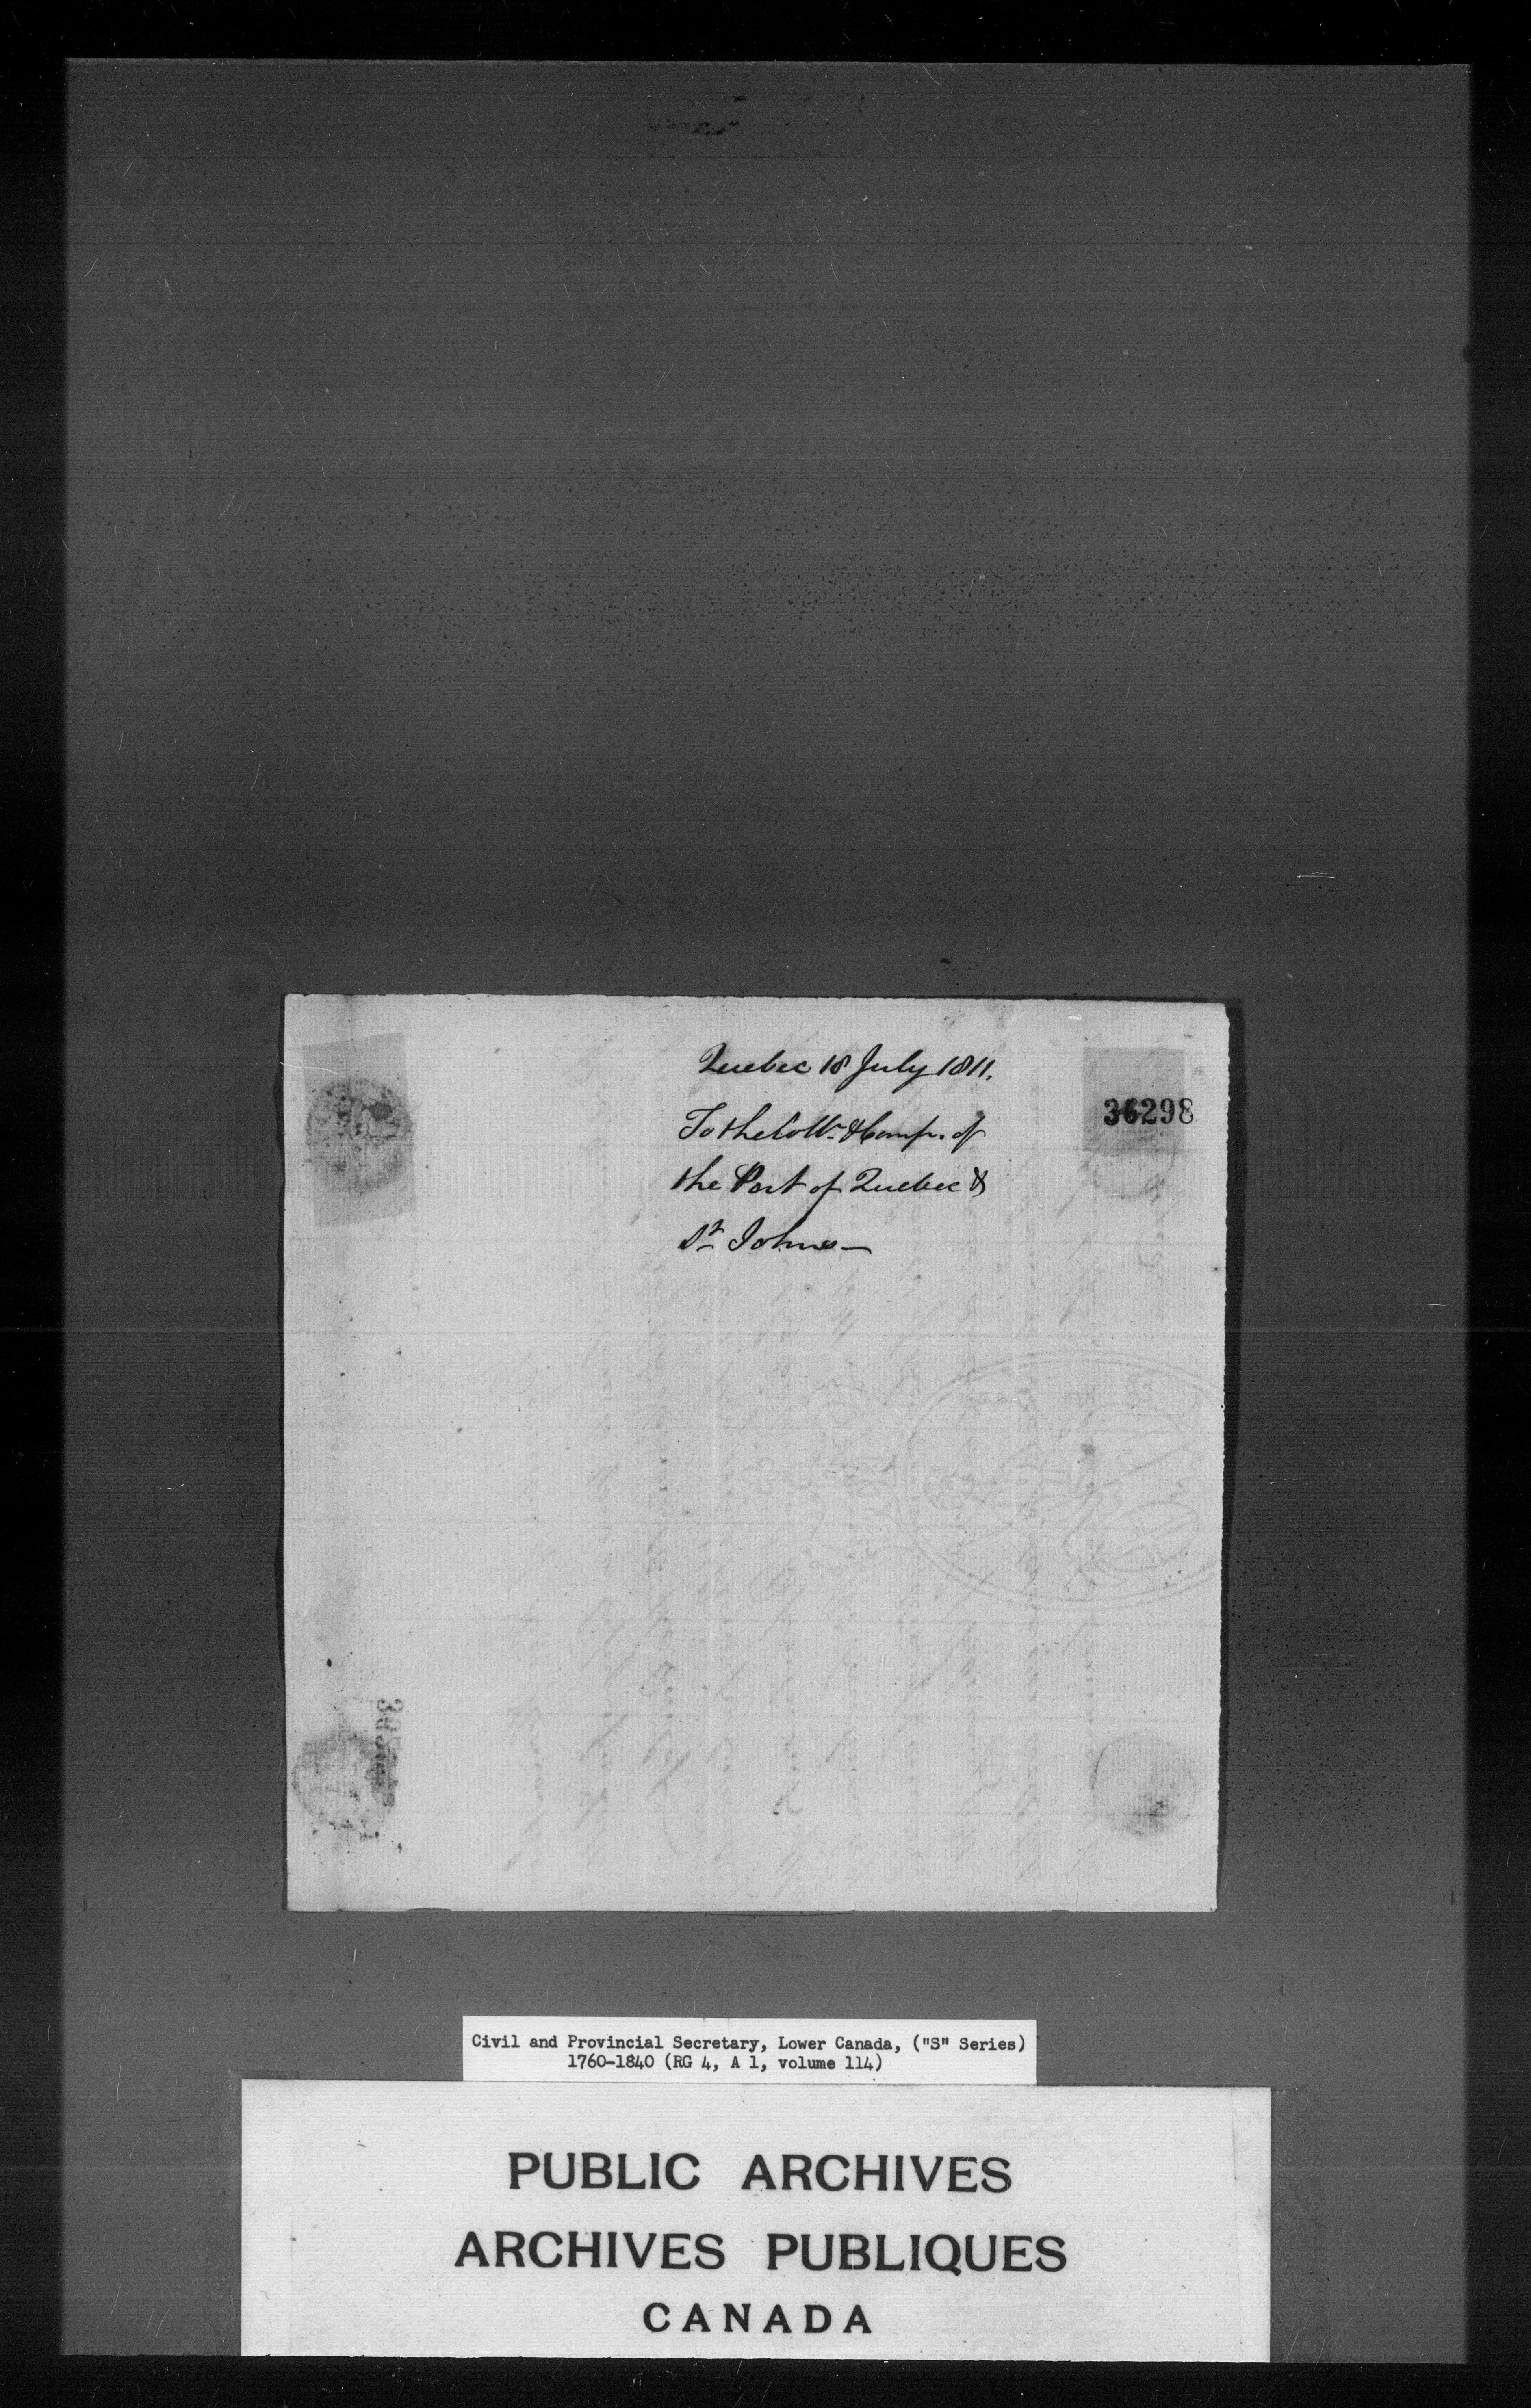 Quebec 18 July 1811.
36298
To the Collr. & Comp. of
the Port of Quebec &
St. Johns—
Civil and Provincial Secretary, Lower Canada, ("S" Series)
1760-1840 (RG 4, A 1, volume 114)
PUBLIC ARCHIVES
ARCHIVES PUBLIQUES
CANADA